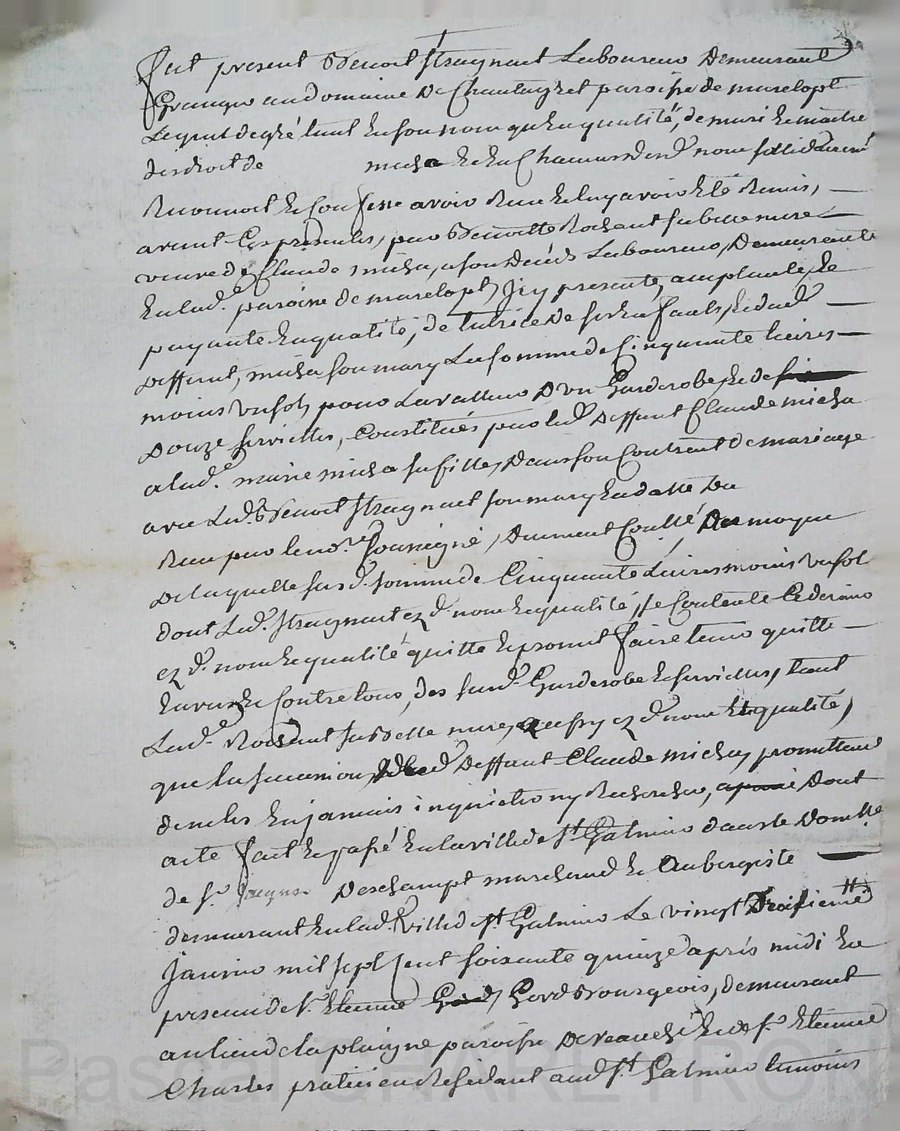 fut present Benoit Stragnart Laboureur Demeurant
Granger au domaine de Chantagret paroisse de marclopt
Lequel degré tant En son nom qu'En qualité, de mari Et maitre
des droit de micha Et En Chacun desd. noms sollidairem.
Reconnoit Et Confesse avoir Reçu Et luy avoir Eté Remis,
avant Ces presentes, par Benoitte Rochant sa belle mere
veuve de Claude micha, a son Déceds Laboureur, Demeurante
En lad. paroisse de marclopt, Icy presente, acceptante, Et
payante En qualité, de tutrice De ses Enfants, Et dud.
Deffunt, micha son mary La somme de Cinquante Livres
moins un sol, pour La valleur D'un Garderobe, Et de
Douze serviettes, Constitués par led. Deffunt Claude micha
a lad. marie micha sa fille, Dans son Contrat de mariage
avec Led. Benoit Stragnart son mary En datte du
Reçu par le no.re soussigné, Duement Contlé, Au moyen
De laquelle susd. somme de Cinquante Livres moins un sol
dont Led. Stragnart ez d. nom Et qualité, se Contente Et De rien
ez d. nom Et qualité quitte Et promet faire tenir quitte
Envers Et Contre tous, des susd. Garderobe Et serviettes, tant
Lad. Rochant sa Belle mere, ez d. nom Et qualité,
que la succession dud. Deffunt Claude micha, promettant
de ne les En jamais inquietter ny Rechercher, Dont
acte fait Et passé En la ville de St. Galmier dans le Domille
de Sr. Jacques Deschampt marchand Et Aubergiste
demeurant En lad. ville de St. Galmier Le vingt Troisieme
Janvier mil sept Cent soixante quinze après midi En
presence de Sr. Etienne Gord Bourgeois, demeurant
au lieu de la plaigne paroisse De Et de Sr. Etienne
Charles praticien Residant aud. St. Galmier temoins
Pascal CHARETRON